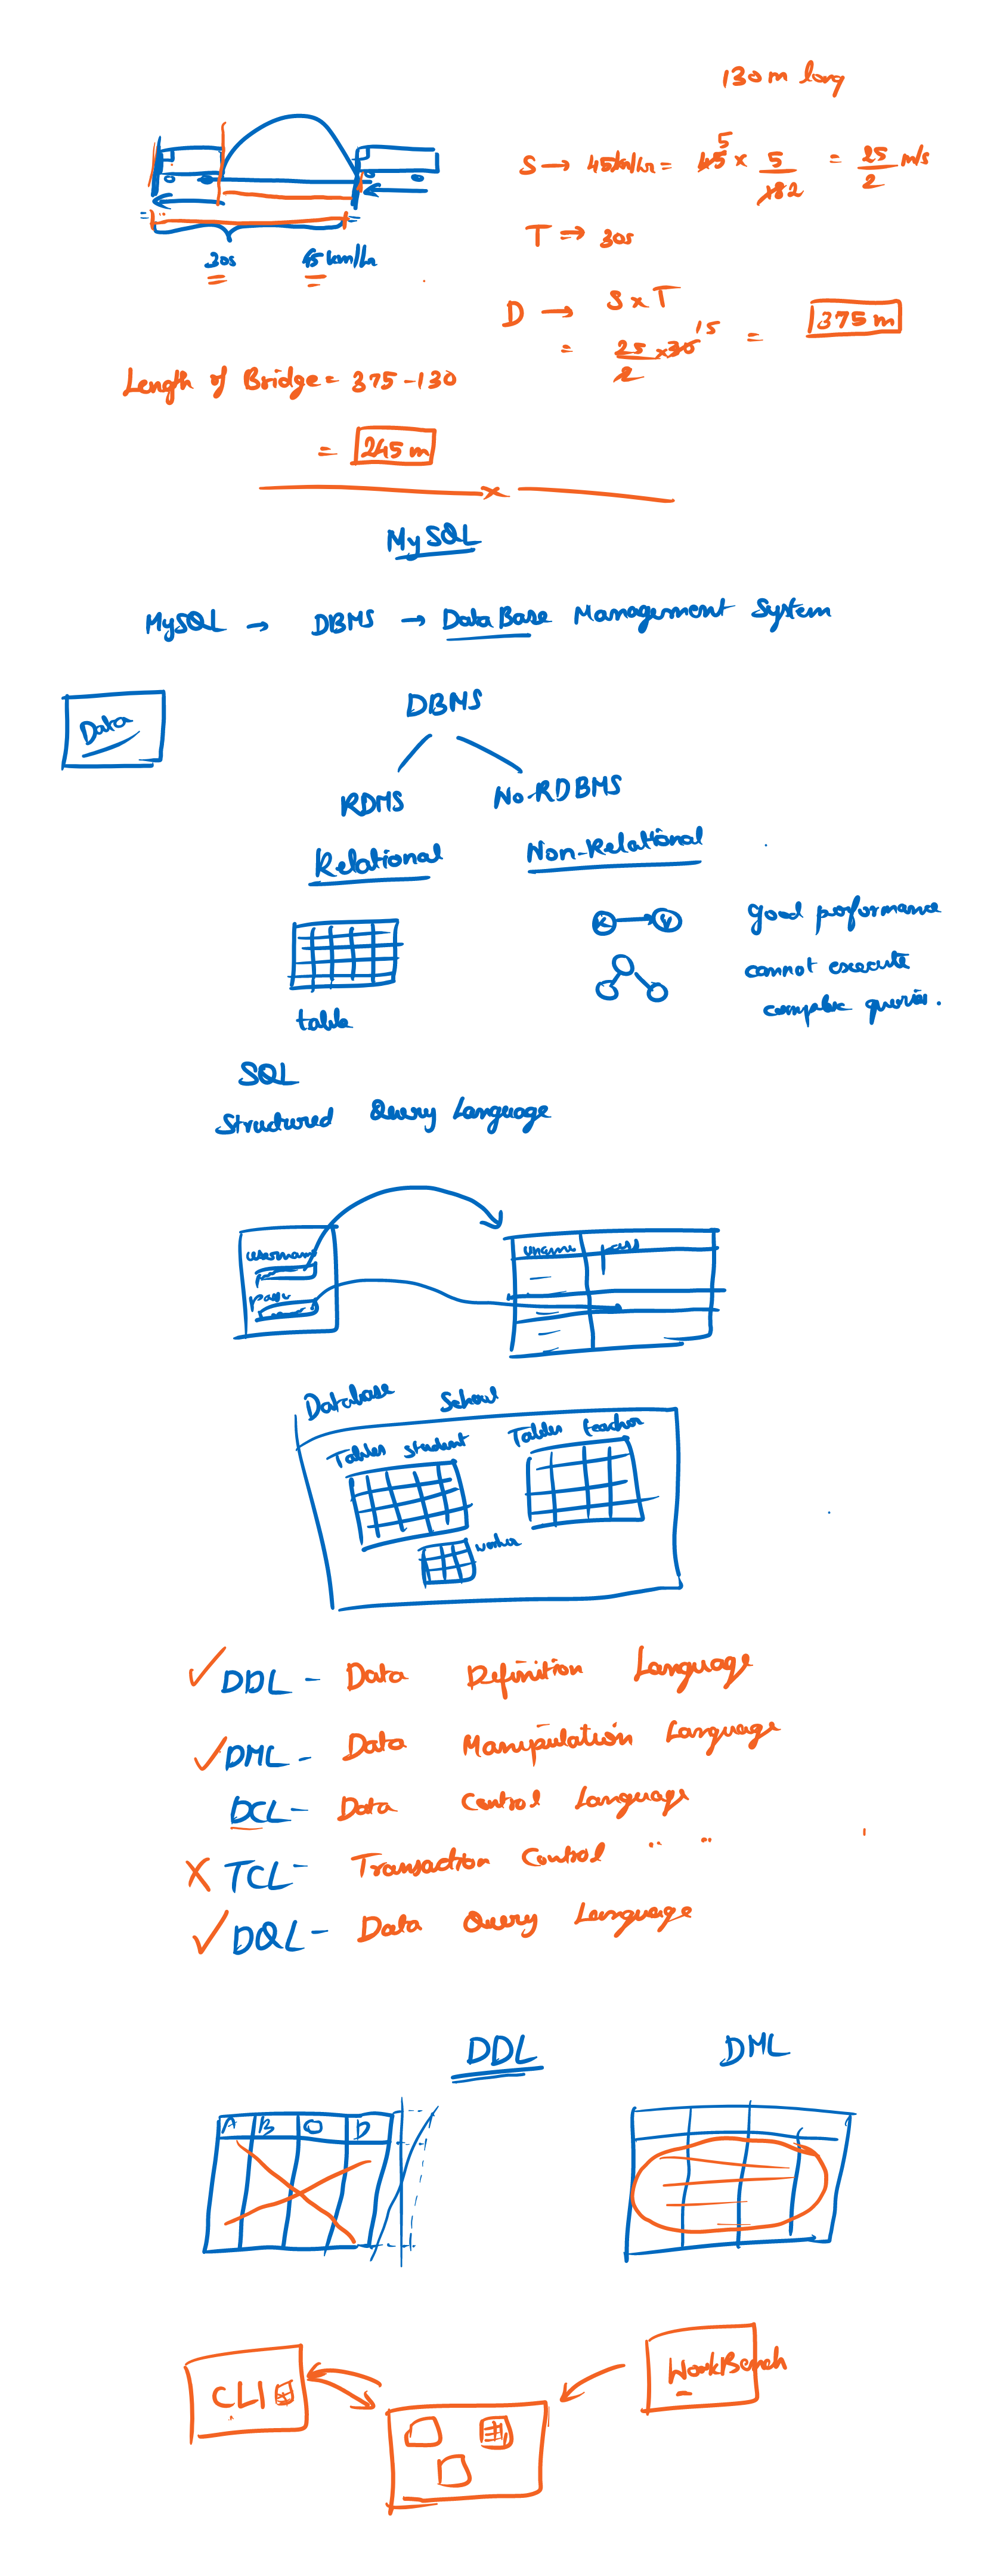 130m long
S → 45km/hr = 45 5 × 5/18 2 = 25/2 m/s
T → 30s
30s 45 km/hr
D → S × T
= 25/2 × 30 15 = 375 m
Length of Bridge = 375 - 130
= 245 m
x
MySQL
MySQL → DBMS → DataBase Management System
Data
DBMS
RDMS No-RDBMS
Relational Non-Relational
K → V good performance
cannot execute
complex queries.
table
SQL
Structured Query Language
username uname pass
pass
Database School
Tables student Tables teacher
worker
✓ DDL - Data Definition Language
✓ DML - Data Manipulation Language
DCL - Data Control Language
X TCL - Transaction Control " "
✓ DQL - Data Query Language
DDL DML
A B C D
CLI WorkBench